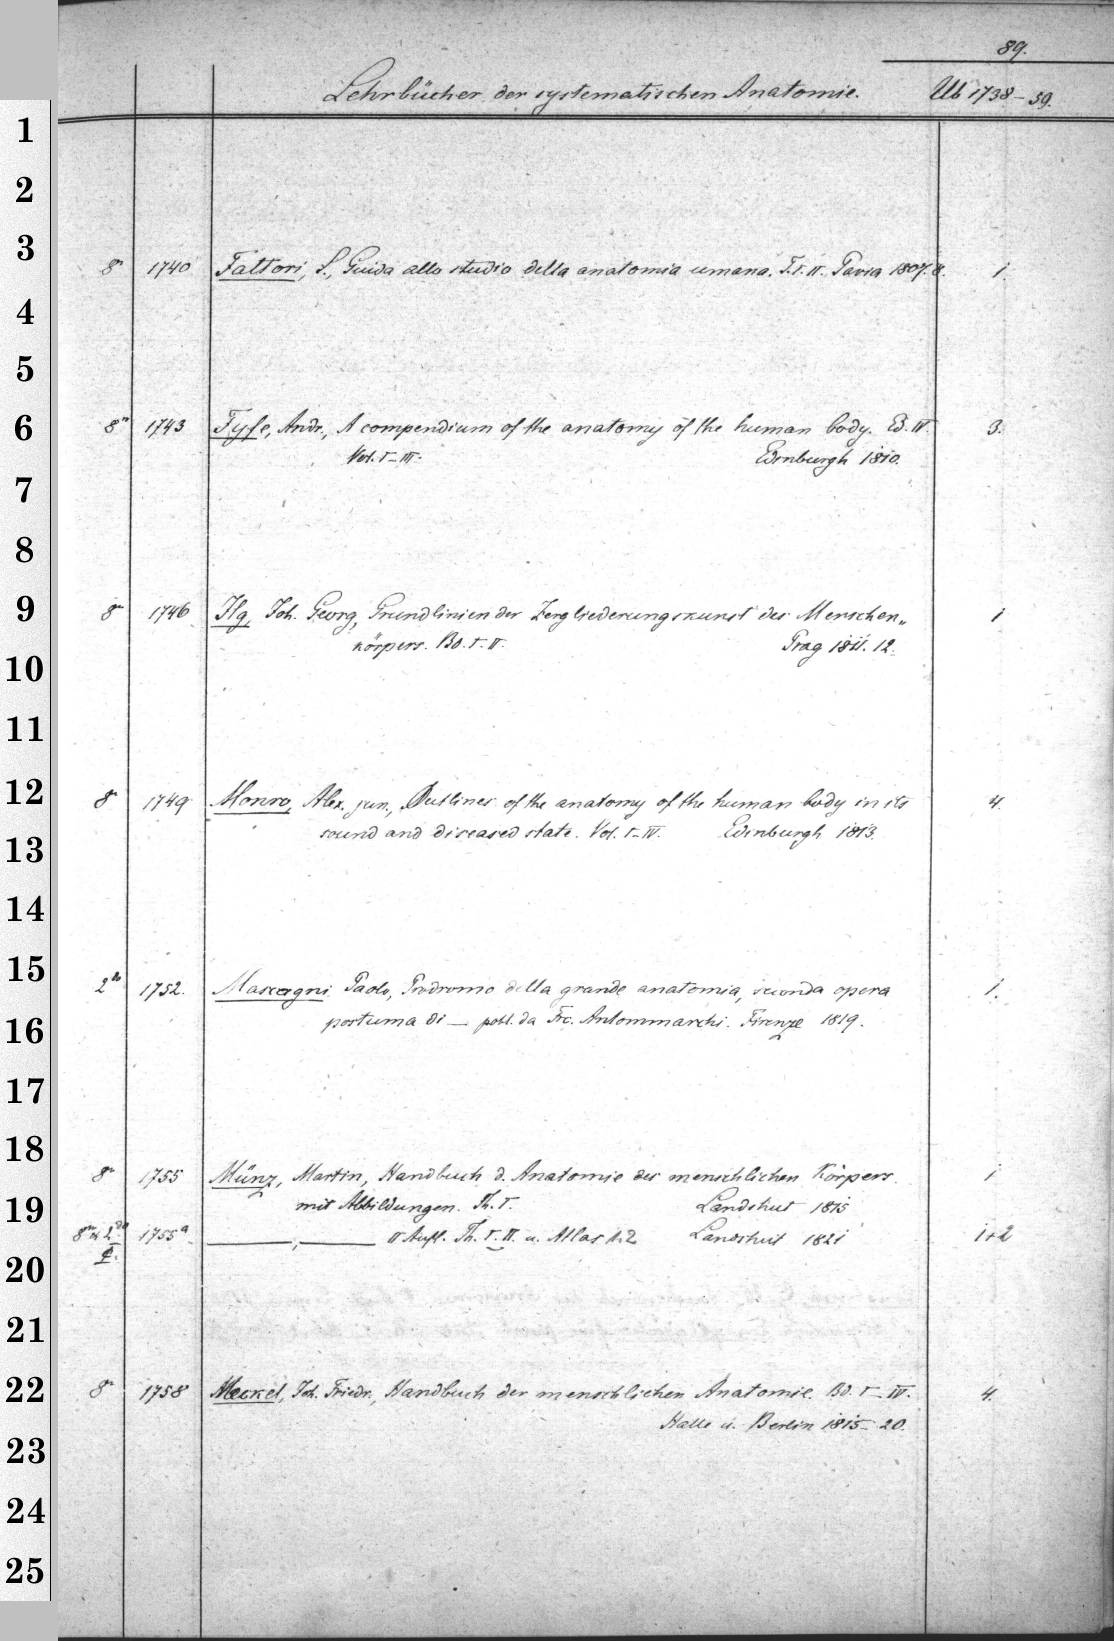 89.
Lehrbücher der systematischen Anatomie. Ub 1738-59.
1
2
3
8° 1740 Fattori, S., Guida allo studio della anatomia umana. T. I. II. Pavia 1807. 8. 1.
4
5
6 8° 1743 Fyfe, Andr., A compendium of the anatomy of the human body. Ed. IV. 3.
Vol. I-III. Edinburgh 1810.
7
8
9 8° 1746 Ilg, Joh. Georg, Grundlinien der Zergliederungskunst des Menschen„ 1
körpers. Bd. I. II. Prag 1811. 12.
10
11
12 8° 1749 Monro, Alex. jun., Outlines of the anatomy of the human body in its 4.
13 sound and diseased state. Vol. I-IV. Edinburgh 1813.
14
15 2° 1752. Mascagni Paolo, Prodromo della grande anatomia, seconda opera 1.
16 postuma di — publ. da Frc. Antommarchi. Firenze 1819.
17
18 8° 1755 Münz, Martin, Handbuch d. Anatomie des menschlichen Körpers. 1
19 mit Abbildungen. Th. I. Landshut 1815
1755a ——, —— II Aufl. Th. I. II. u. Atlas 1.2 Landshut 1821 1+2
20
21
22 8° 1758 Meckel, Joh. Friedr., Handbuch der menschlichen Anatomie. Bd. I-IV. 4.
Halle u. Berlin 1815-20.
23
24
25